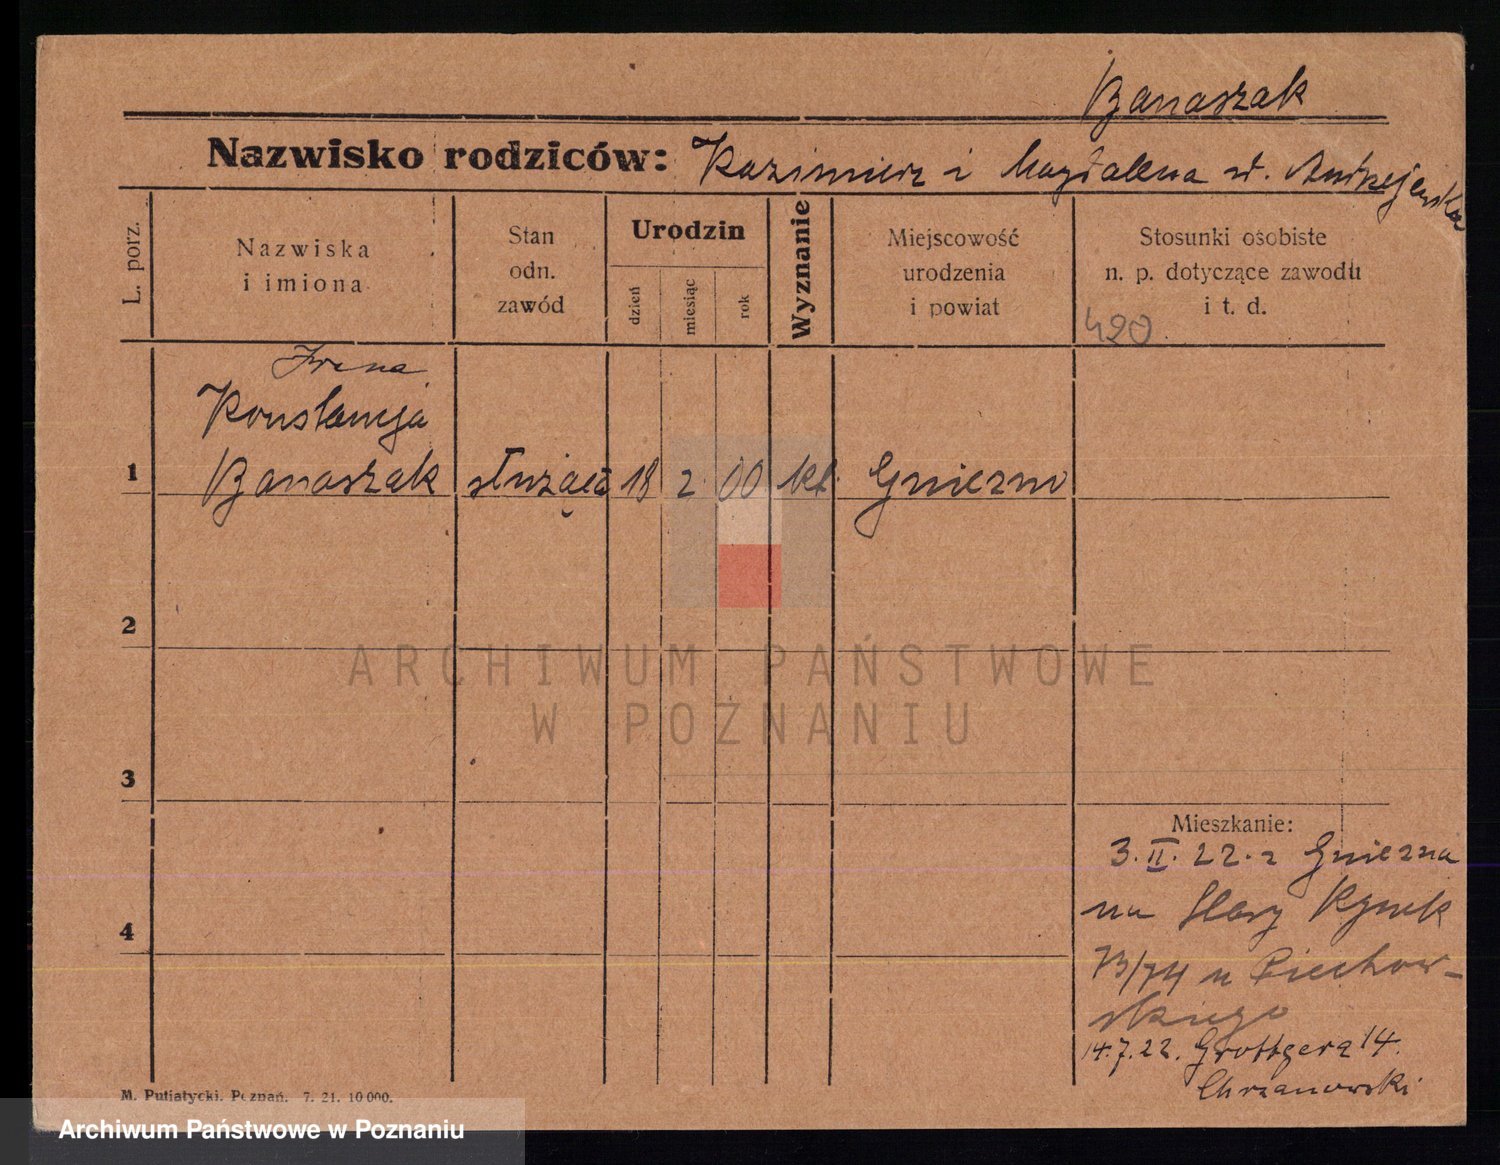 Banaszak
Nazwisko rodziców: Kazimierz i Magdalena z d. Andrzejewska
L. porz.
Nazwiska
i imiona
Stan
odn.
zawód
Urodzin
dzień
miesiąc
rok
Wyznanie
Miejscowość
urodzenia
i powiat
Stosunki osobiste
n. p. dotyczące zawodu
i t. d.
420
Irena
Konstancja
1 Banaszak służąca 18 2. 00 kt. Gniezno
2
3
4
Mieszkanie:
3. II. 22. z Gniezna
na Stary Rynek
73/74 u Piechow-
skiego
14.7.22. Grottgera 14.
Chrzanowski
M. Putiatycki. Poznań. 7. 21. 10 000.
ARCHIWUM PAŃSTWOWE
W POZNANIU
Archiwum Państwowe w Poznaniu